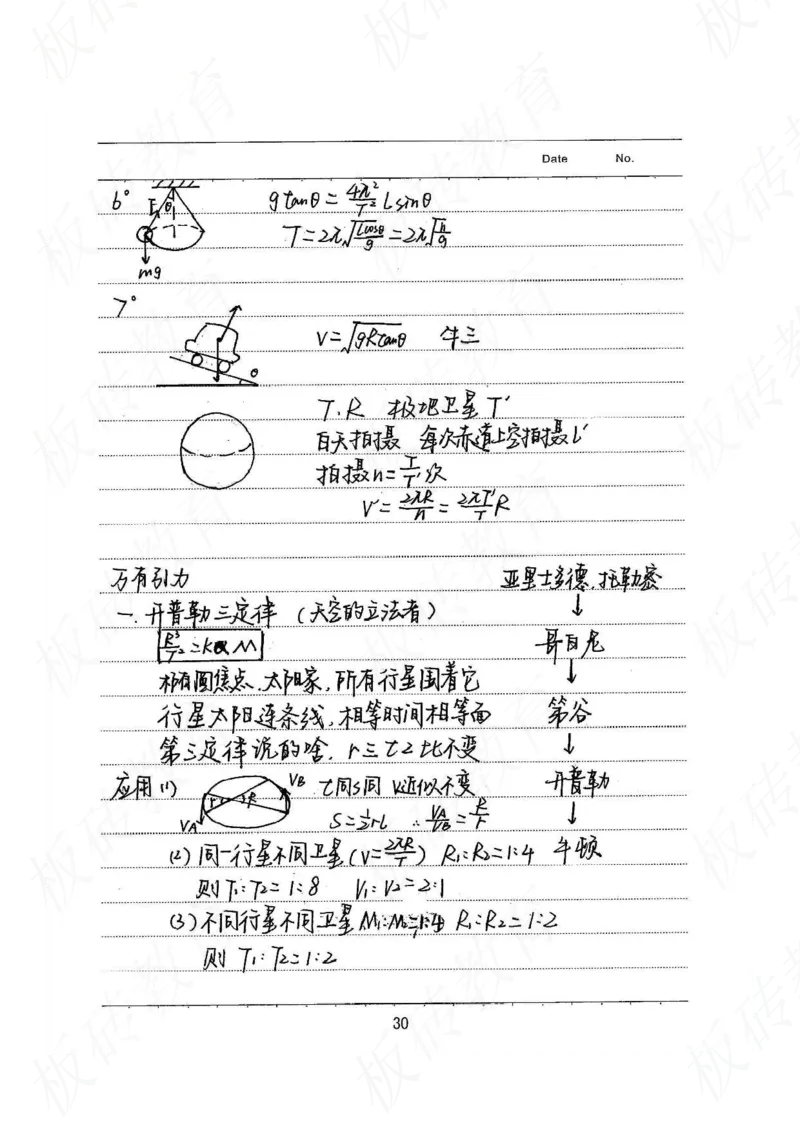 Date No.
6°
F θ
mg
g tanθ = 4π²/T² L sinθ
T=2π√(Lcosθ/g) = 2π√(h/g)
7°
θ
V=√(gRtanθ) 牛三
T.R 极地卫星T'
白天拍摄 每次赤道上空拍摄L'
拍摄n=T/T'次
L'=2πR/n=2πT'/T R
万有引力
一.开普勒三定律 (天空的立法者)
R³/T²=K∝M
椭圆焦点、太阳家,所有行星围着它
行星太阳连条线,相等时间相等面
第三定律说的啥,r三t2比不变
亚里士多德、托勒密
↓
哥白尼
↓
第谷
↓
开普勒
↓
牛顿
应用(1)
r R VB
VA
t同S同 V近似不变
S=1/2rL ∴VA/VB=R/r
(2)同一行星不同卫星(V=2πR/T) R₁:R₂=1:4
则T₁:T₂=1:8 V₁:V₂=2:1
(3)不同行星不同卫星 M₁:M₂=1:4 R₁:R₂=1:2
则 T₁:T₂=1:2
30
板砖教育